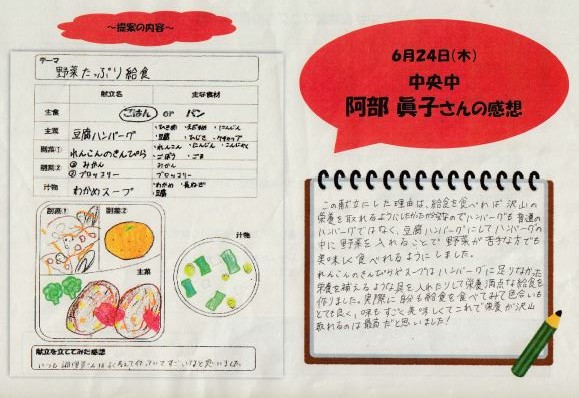 ～提案の内容～
テーマ
野菜たっぷり給食
献立名 主な食材
主食 ごはん or パン
主菜 豆腐ハンバーグ ・ひき肉 ・えだまめ ・にんじん
・豆腐 ・ひじき ・ケチャップ
副菜① れんこんのきんぴら ・れんこん ・にんじん ・こんにゃく
・ごぼう ・ごま
副菜② ②みかん みかん
②ブロッコリー ブロッコリー
汁物 わかめスープ ・わかめ ・長ねぎ
・豆腐
副菜① 副菜②
主菜
汁物
献立を立ててみた感想
いつも調理員さんは
6月24日(木)
中央中
阿部 眞子さんの感想
この献立にした理由は、給食を食べれば沢山の
栄養を取れるようにしたかったからなのでハンバーグも普通の
ハンバーグではなく、豆腐ハンバーグにしてハンバーグの
中に野菜を入れることで野菜が苦手な方でも
美味しく食べれるようにしました。
れんこんのきんぴらやスープはハンバーグに足りなかった
栄養を補えるような具を入れたりして栄養満点な給食を
作りました。実際に自分も給食を食べてみて色合いも
とても良く、味もすごく美味しくてこれで栄養が沢山
取れるのは最高だと思いました!